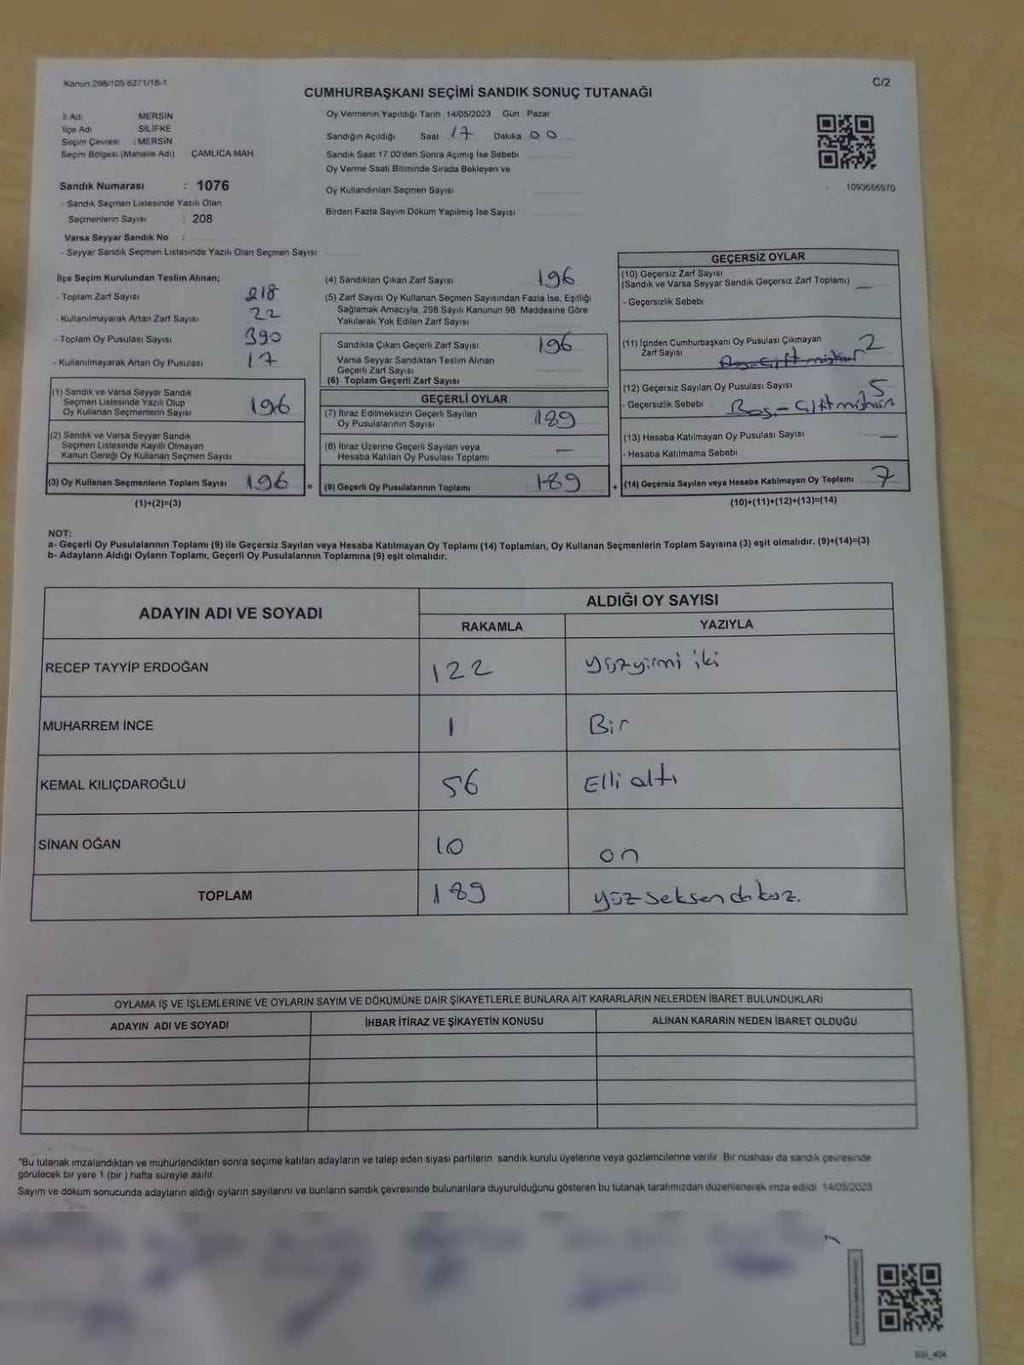 Kanun:298/105:6271/18-1
C/2
CUMHURBAŞKANI SEÇİMİ SANDIK SONUÇ TUTANAĞI
İl Adı MERSİN
İlçe Adı SİLİFKE
Seçim Çevresi : MERSİN
Seçim Bölgesi (Mahalle Adı) ÇAMLICA MAH
Oy Vermenin Yapıldığı Tarih 14/05/2023 Gün Pazar
Sandığın Açıldığı Saat 17 Dakika 00
Sandık Saat 17 00'den Sonra Açımış İse Sebebi
Oy Verme Saati Bitiminde Sırada Bekleyen ve
Oy Kullandırılan Seçmen Sayısı
Birden Fazla Sayım Döküm Yapılmış İse Sayısı
1093656970
Sandık Numarası : 1076
- Sandık Seçmen Listesinde Yazılı Olan
Seçmenlerin Sayısı : 208
Varsa Seyyar Sandık No :
- Seyyar Sandık Seçmen Listesinde Yazılı Olan Seçmen Sayısı
İlçe Seçim Kurulundan Teslim Alınan;
- Toplam Zarf Sayısı 218
- Kullanılmayarak Artan Zarf Sayısı 22
- Toplam Oy Pusulası Sayısı 390
- Kullanılmayarak Artan Oy Pusulası 17
(1) Sandık ve Varsa Seyyar Sandık
Seçmen Listesinde Yazılı Olup
Oy Kullanan Seçmenlerin Sayısı 196
(2) Sandık ve Varsa Seyyar Sandık
Seçmen Listesinde Kayıtlı Olmayan
Kanun Gereği Oy Kullanan Seçmen Sayısı
(3) Oy Kullanan Seçmenlerin Toplam Sayısı 196 =
(1)+(2)=(3)
(4) Sandıktan Çıkan Zarf Sayısı 196
(5) Zarf Sayısı Oy Kullanan Seçmen Sayısından Fazla İse, Eşitliği
Sağlamak Amacıyla, 298 Sayılı Kanunun 98. Maddesine Göre
Yakılarak Yok Edilen Zarf Sayısı
Sandıkta Çıkan Geçerli Zarf Sayısı 196
Varsa Seyyar Sandıktan Teslim Alınan
Geçerli Zarf Sayısı
(6) Toplam Geçerli Zarf Sayısı
GEÇERLİ OYLAR
(7) İtiraz Edilmeksizin Geçerli Sayılan
Oy Pusulalarının Sayısı 189
(8) İtiraz Üzerine Geçerli Sayılan veya
Hesaba Katılan Oy Pusulası Toplamı —
(9) Geçerli Oy Pusulalarının Toplamı 189 +
GEÇERSİZ OYLAR
(10) Geçersiz Zarf Sayısı
(Sandık ve Varsa Seyyar Sandık Geçersiz Zarf Toplamı) —
- Geçersizlik Sebebi :
(11) İçinden Cumhurbaşkanı Oy Pusulası Çıkmayan
Zarf Sayısı 2
(12) Geçersiz Sayılan Oy Pusulası Sayısı 5
- Geçersizlik Sebebi
(13) Hesaba Katılmayan Oy Pusulası Sayısı —
- Hesaba Katılmama Sebebi
(14) Geçersiz Sayılan veya Hesaba Katılmayan Oy Toplamı 7
(10)+(11)+(12)+(13)=(14)
NOT:
a- Geçerli Oy Pusulalarının Toplamı (9) ile Geçersiz Sayılan veya Hesaba Katılmayan Oy Toplamı (14) Toplamları, Oy Kullanan Seçmenlerin Toplam Sayısına (3) eşit olmalıdır. (9)+(14)=(3)
b- Adayların Aldığı Oyların Toplamı, Geçerli Oy Pusulalarının Toplamına (9) eşit olmalıdır.
ADAYIN ADI VE SOYADI
ALDIĞI OY SAYISI
RAKAMLA YAZIYLA
RECEP TAYYİP ERDOĞAN 122 yüzyirmi iki
MUHARREM İNCE 1 Bir
KEMAL KILIÇDAROĞLU 56 Elli altı
SİNAN OĞAN 10 on
TOPLAM 189 yüzseksendokuz.
OYLAMA İŞ VE İŞLEMLERİNE VE OYLARIN SAYIM VE DÖKÜMÜNE DAİR ŞİKAYETLERLE BUNLARA AİT KARARLARIN NELERDEN İBARET BULUNDUKLARI
ADAYIN ADI VE SOYADI İHBAR İTİRAZ VE ŞİKAYETİN KONUSU ALINAN KARARIN NEDEN İBARET OLDUĞU
*Bu tutanak imzalandıktan ve mühürlendikten sonra seçime katılan adayların ve talep eden siyasi partilerin sandık kurulu üyelerine veya gözlemcilerine verilir. Bir nüshası da sandık çevresinde
görülecek bir yere 1 (bir ) hafta süreyle asılır.
Sayım ve döküm sonucunda adayların aldığı oyların sayılarını ve bunların sandık çevresinde bulunanlara duyurulduğunu gösteren bu tutanak tarafımızdan düzenlenerek imza edildi. 14/05/2023